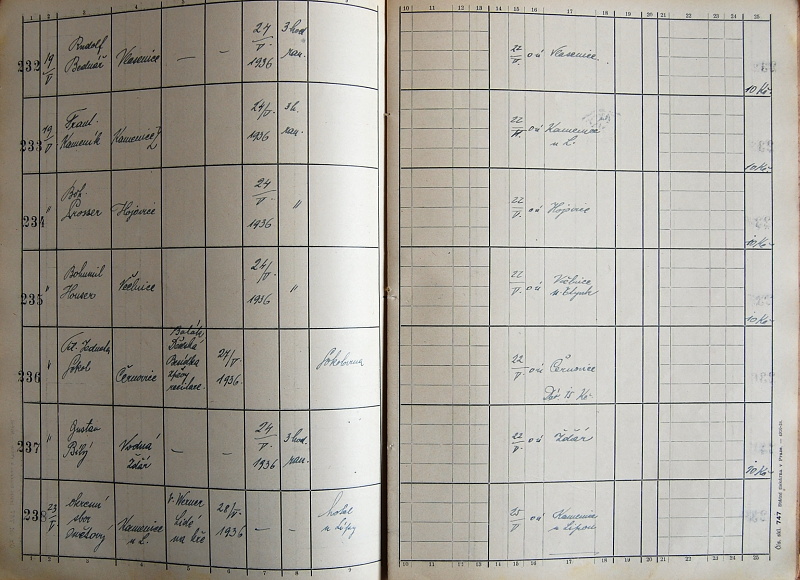 1 2 3 4 5 6 7 8 9
232 19/V Rudolf Bednář Vlasenice — — 24/V 1936 3 hod ran.
233 19/V Frant. Kameník Kamenice 24/V 1936 3 h. ran.
234 " Boh. Prosser Hojovice 24/V 1936 "
235 " Bohumil Houser Včelnice 24/V 1936 "
236 " Jednota Sokol Černovice 24/V 1936. Sokolovna
237 " Gustav Bílý Vodná Žďár — — 24/V 1936 3 hod. ran.
238 23/V sbor Kamenice n L. Werner Lidé na kře 28/V 1936 — — hotel u Lípy
1 2 3 4 5 6 7 8 9
10 11 12 13 14 15 16 17 18 19 20 21 22 23 24 25
22/V. o ú Vlasenice 10 Kč
22/V. o ú Kamenice n L. 10 Kč
22/V. o ú Hojovice 10 Kč
22/V. o ú Včelnice 10 Kč
22/V. o ú Černovice
15 Kč
22/V. o ú Žďár 10 Kč
25/V. o ú Kamenice n Lipou
10 11 12 13 14 15 16 17 18 19 20 21 22 23 24 25
Čís. skl. 747